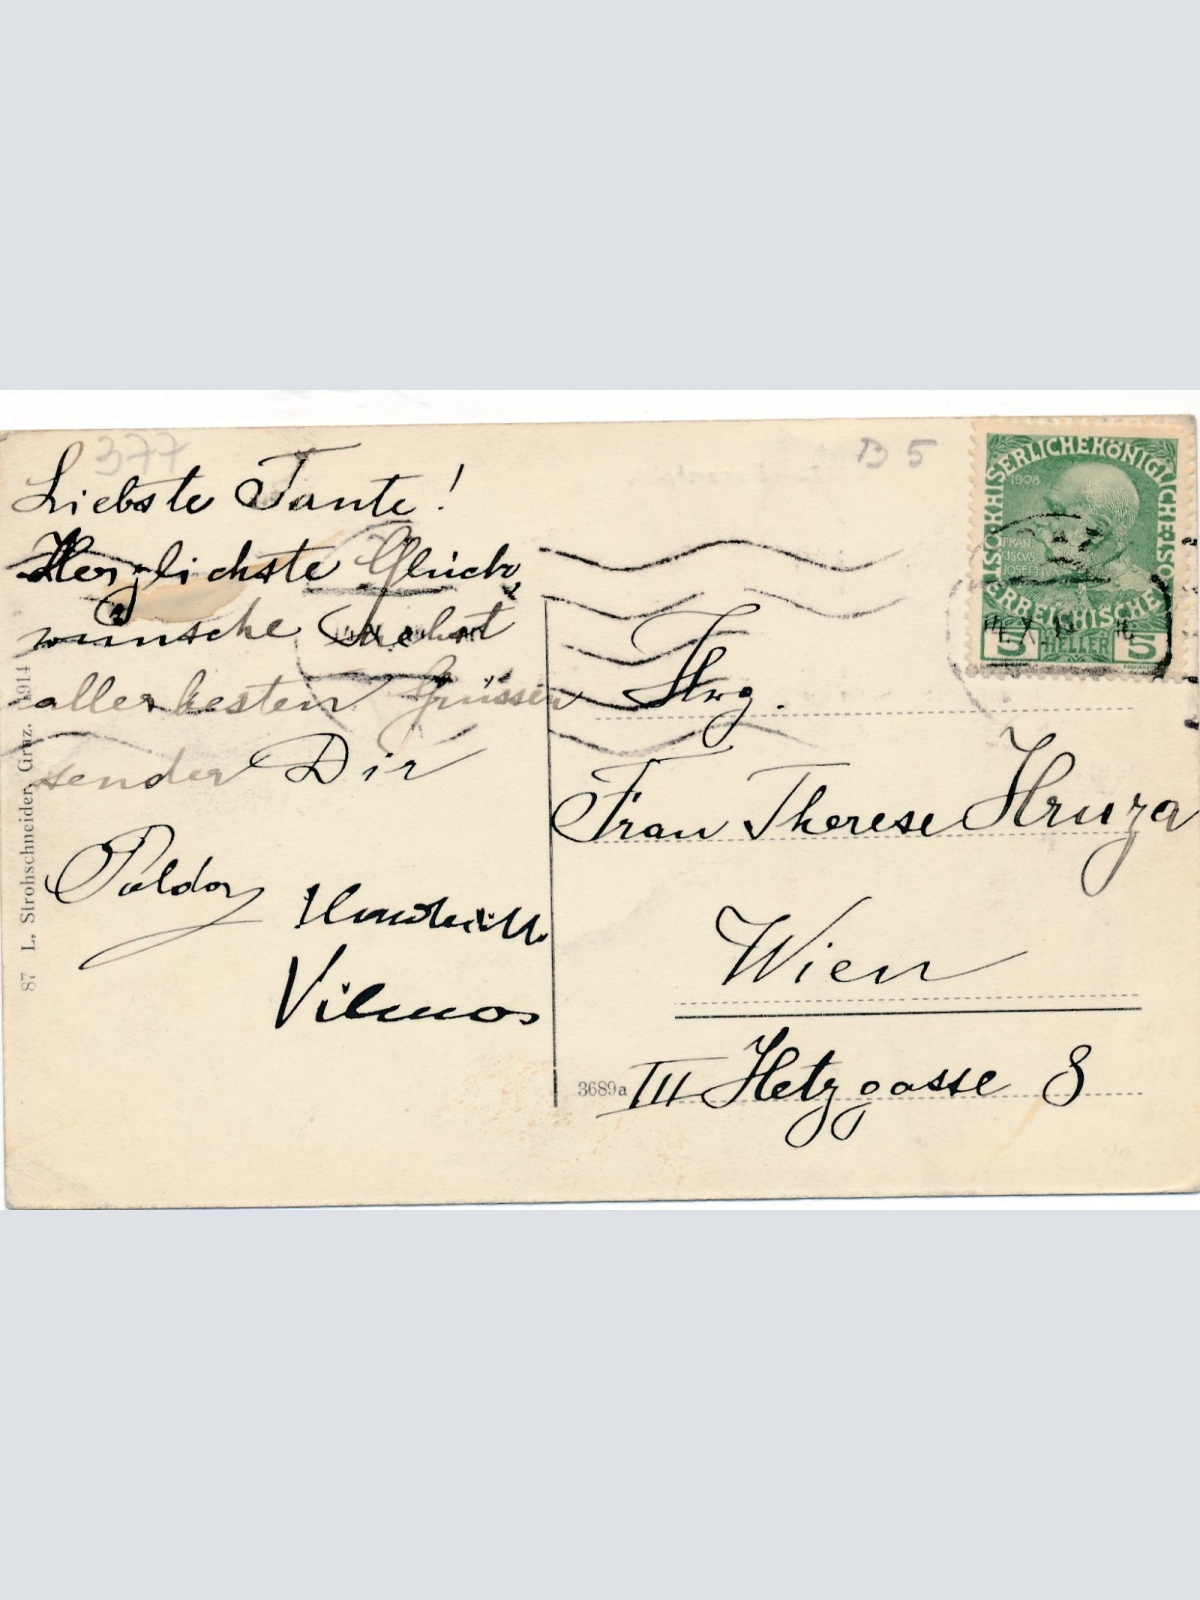 377
B 5
Liebste Tante!
Herzlichste Glück,
wünsche nebst
allerbesten Grüssen
sendet Dir
Poldy
Vilmos
87 L. Strohschneider, Graz. 1914
KAISERLICHE KÖNIGLICHE ÖSTERREICHISCHE
1908
FRAN
CISCVS
JOSEPH I
14. X. 1
5 HELLER 5
Hwg.
Frau Therese Hruza
Wien
3689a
III Hetzgasse 8